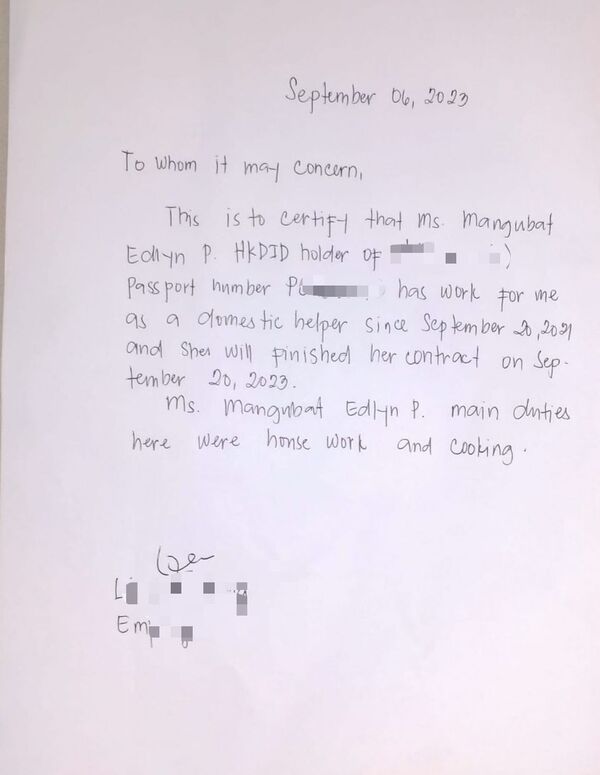 September 06, 2023
To whom it may concern,
This is to certify that Ms. Mangubat
Edlyn P. HKDID holder of )
Passport number P has work for me
as a domestic helper since September 20, 2021
and shes will finished her contract on Sep-
tember 20, 2023.
Ms. Mangubat Edlyn P. main duties
here were house work and cooking.